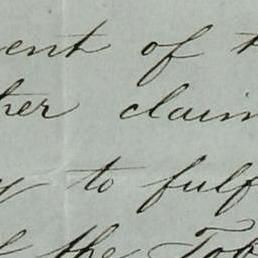 ent of t
her claim
y to fulf
f the Tor